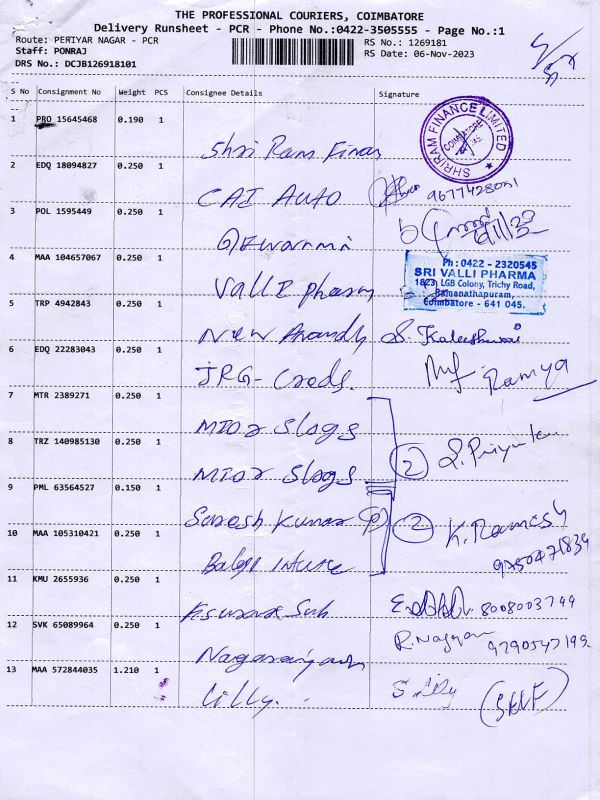 THE PROFESSIONAL COURIERS, COIMBATORE
Delivery Runsheet - PCR - Phone No.:0422-3505555 - Page No.:1
Route: PERIYAR NAGAR - PCR
RS No.: 1269181
Staff: PONRAJ
RS Date: 06-Nov-2023
DRS No.: DCJB126918101
S No Consignment No Weight PCS Consignee Details Signature
1 PRO 15645468 0.190 1 Shri Ram Finan
SHRIRAM FINANCE LIMITED
COIMBATORE
2 EDQ 18094827 0.250 1 CAI AUTO
3 POL 1595449 0.250 1
4 MAA 104657067 0.250 1 Valli pharm
Ph: 0422 - 2320545
SRI VALLI PHARMA
1823, LGB Colony, Trichy Road,
Ramanathapuram,
Coimbatore - 641 045.
5 TRP 4942843 0.250 1 New Anandh
6 EDQ 22283043 0.250 1 JRG- Creds. Ramya
7 MTR 2389271 0.250 1
8 TRZ 140985130 0.250 1 2
9 PML 63564527 0.150 1 Suresh Kumar 2 K. Ramesh
10 MAA 105310421 0.250 1
11 KMU 2655936 0.250 1 8008003749
12 SVK 65089964 0.250 1 9790547199
13 MAA 572844035 1.210 1 Lilly.